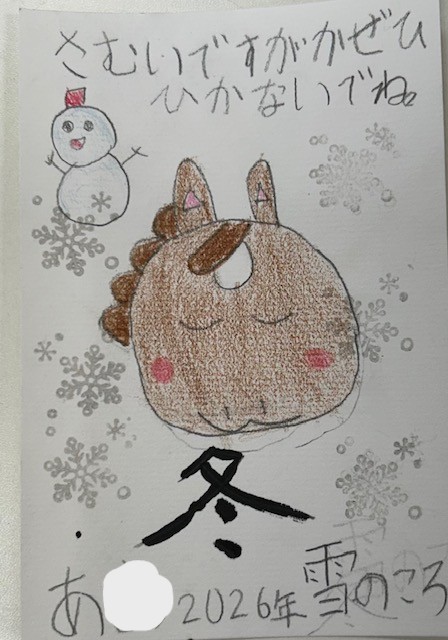 さむいですがかぜひ
ひかないでね。
冬
あ
2026年 雪のころ